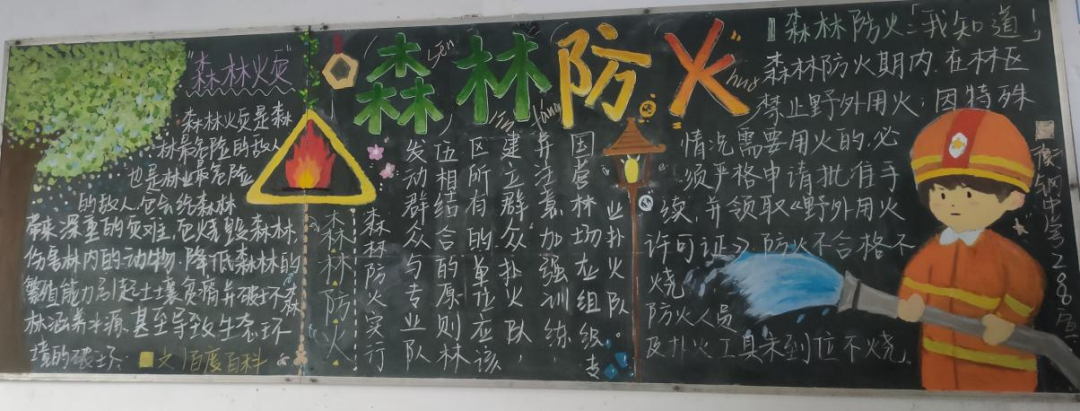 "森林火灾"
森林火灾是森
林最危险的敌人
也是林业最危险
的敌人,它会给森林
带来深重的灾难,它烧毁森林,
伤害林内的动物,降低森林的
繁殖能力,引起土壤贫瘠并破坏森
林涵养水源,甚至导致生态环
境的破坏
百度百科
森林防火
sēn lín fáng huǒ
森林防火
森林防火实行
发动群众与专业队
伍相结合的原则,林
区所有的单位应该
建立群众扑火队,
并注意加强训练,
国营林场应组织专
业扑火队。
森林防火「我知道」
森林防火期内,在林区
禁止野外用火;因特殊
情况需要用火的,必
须严格申请批准手
续,并领取《野外用火
许可证》防火不合格不
烧
防火人员
及扑火工具未到位不烧」
钢中学208